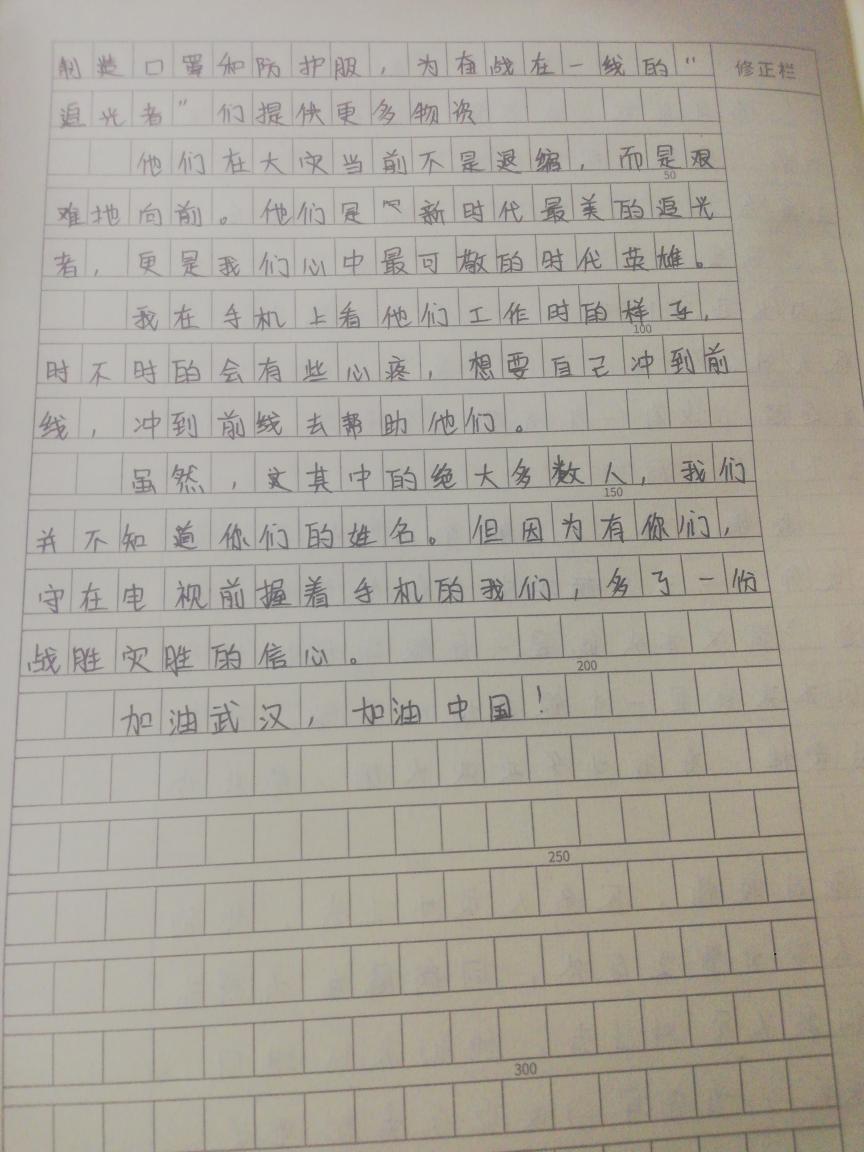 制造口罩和防护服，为奋战在一线的“
修正栏
追光者”们提供更多物资
他们在大灾当前不是退缩，而是艰
50
难地向前。他们是“新时代最美的追光
者，更是我们心中最可敬的时代英雄。
我在手机上看他们工作时的样子，
100
时不时的会有些心疼，想要自己冲到前
线，冲到前线去帮助他们。
虽然，文其中的绝大多数人，我们
150
并不知道你们的姓名。但因为有你们，
守在电视前握着手机的我们，多了一份
战胜灾胜的信心。
200
加油武汉，加油中国！
250
300